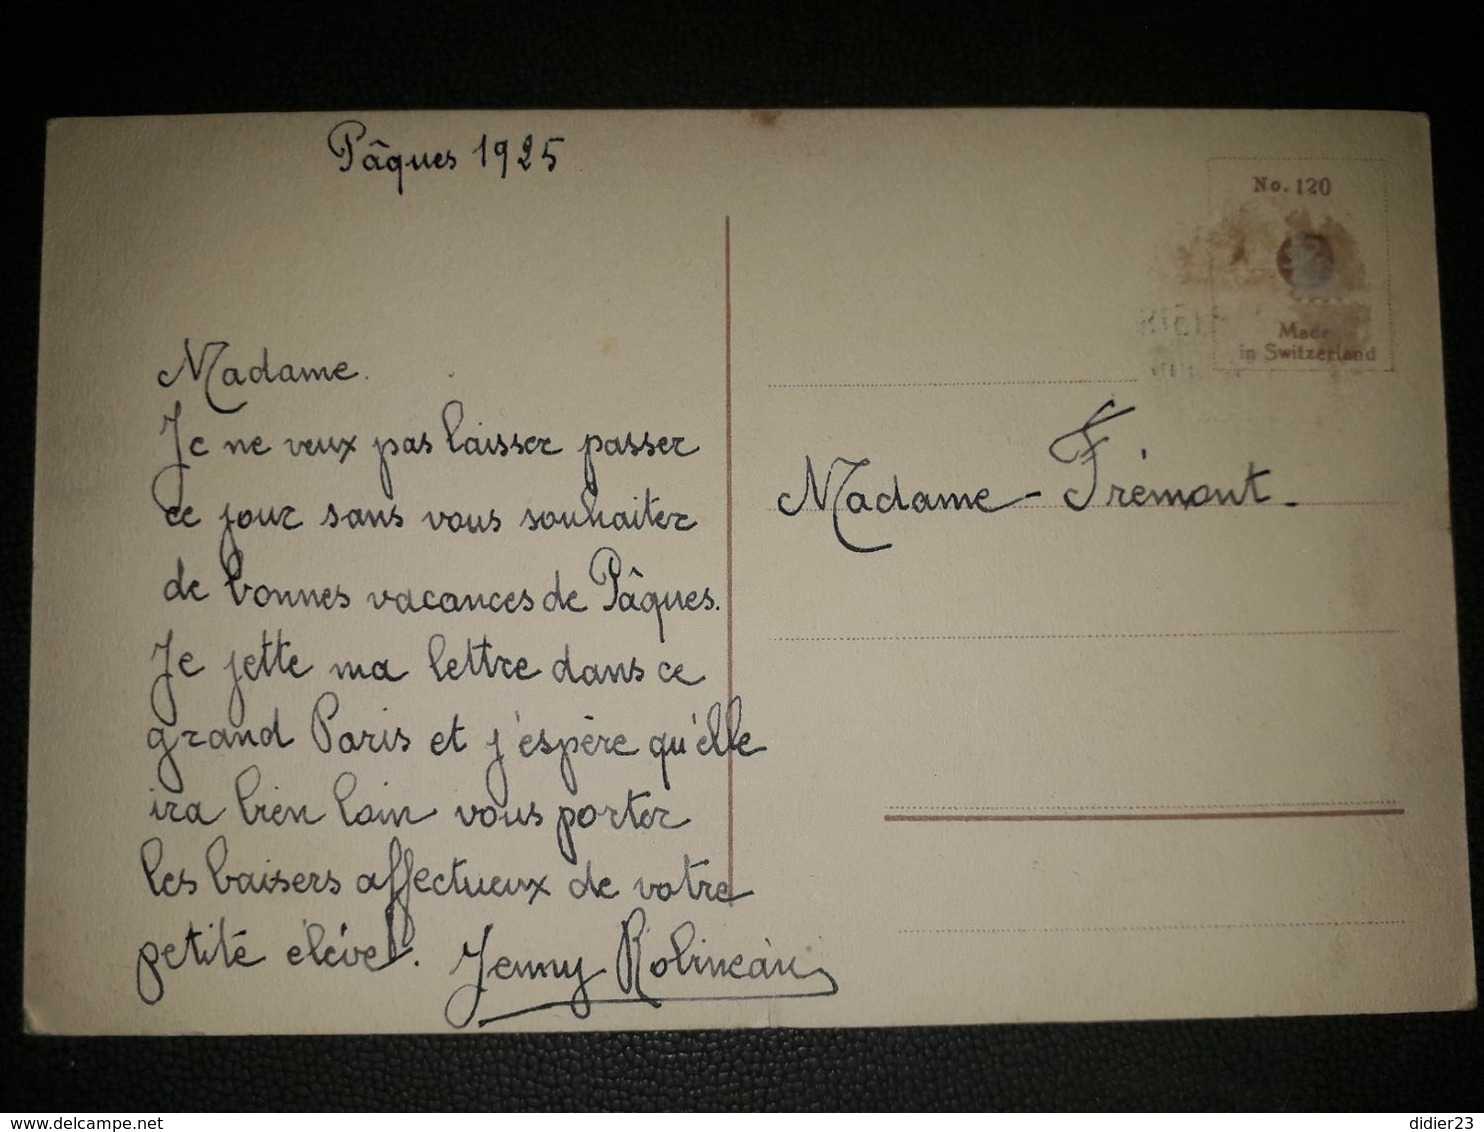 Pâques 1925
No. 120
Made
in Switzerland
Madame.
Je ne veux pas laisser passer
ce jour sans vous souhaiter
de bonnes vacances de Pâques.
Je jette ma lettre dans ce
grand Paris et j'espère qu'elle
ira bien loin vous porter
les baisers affectueux de votre
petite élève. Jenny Robineau
Madame Frémont.
www.delcampe.net
didier23